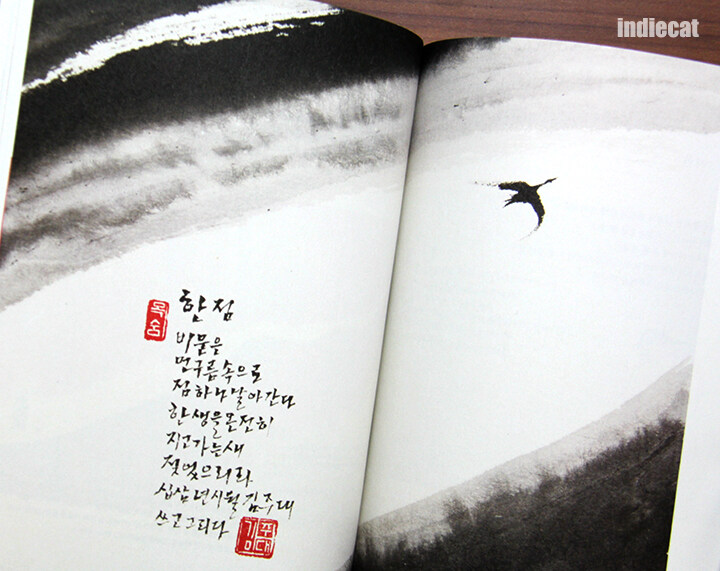 indiecat
한 점
목숨
비 묻은
먼 구름 속으로
점 하나 날아간다
한 생을 온전히
지고 가는 새
젖었으리라
십삼년 시월 김주대
쓰고 그리다
김주대